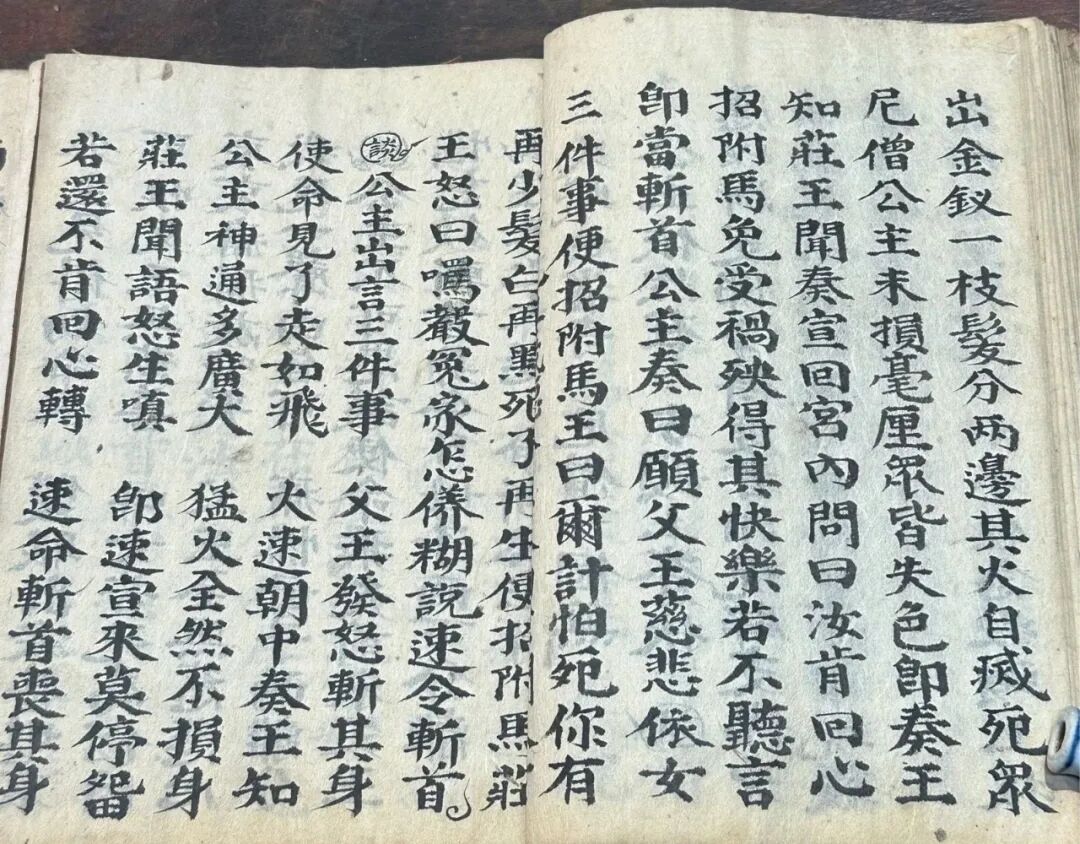 出金釵一枝髮分两邊其火自滅死眾
尼僧公主未損毫厘眾皆失色即奏王
知莊王聞奏宣回宮內問曰汝肯回心
招附馬免受禍殃得其快樂若不聽言
即當斬首公主奏曰願父王慈悲依女
三件事便招附馬王曰爾計怕死你有
再少髮白再黑死了再生便招附馬莊
王怒曰罵聲冤家怎儀糊說速令斬首
談 公主出言三件事 父王發怒斬其身
使命見了走如飛 火速朝中奏王知
公主神通多廣大 猛火全然不損身
莊王聞語怒生嗔 即速宣來莫停畱
若還不肯回心轉 速命斬首喪其身